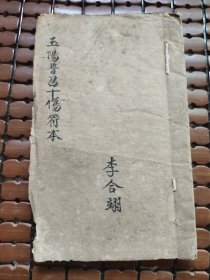 玉陽普召十傷符本
李合翊